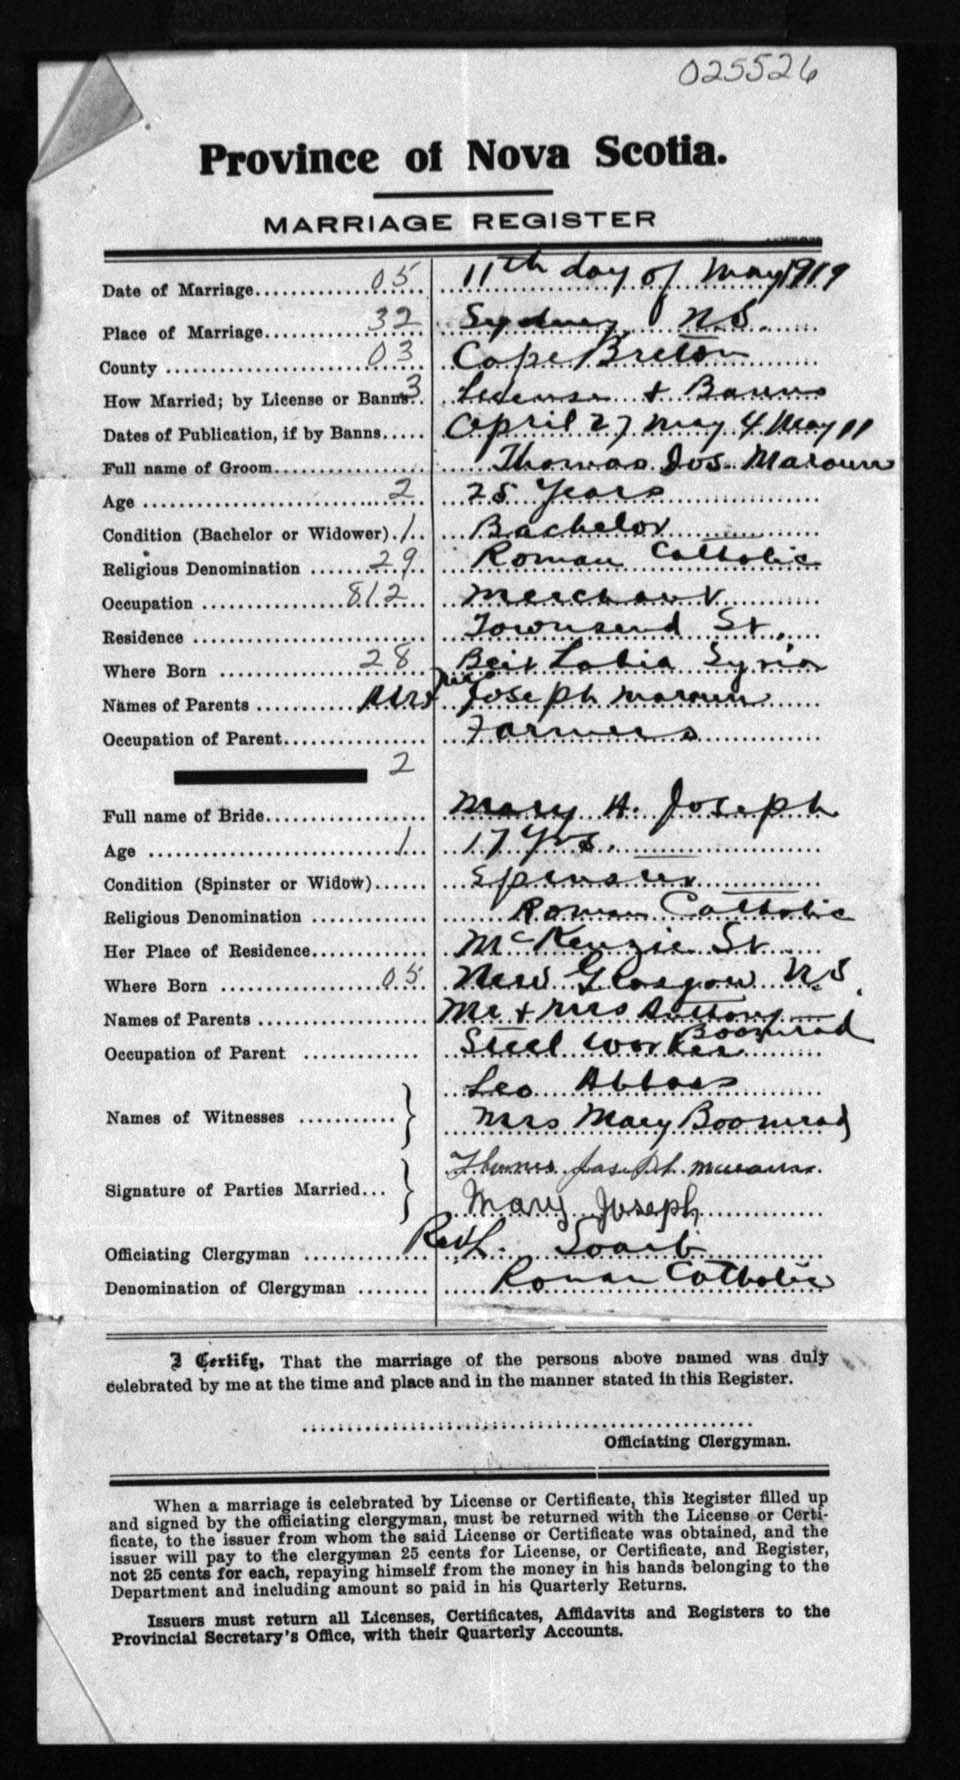 025526
Province of Nova Scotia.
MARRIAGE REGISTER
Date of Marriage 05 11th day of May 1919
Place of Marriage 32 Sydney N.S.
County 03 Cape Breton
How Married; by License or Banns 3 License & Banns
Dates of Publication, if by Banns April 27 May 4 May 11
Full name of Groom Thomas Jos. Maroun
Age 2 25 Years
Condition (Bachelor or Widower) 1 Bachelor
Religious Denomination 29 Roman Catholic
Occupation 812 Merchant
Residence Townsend St.
Where Born 28 Beit Labia Syria
Names of Parents Mrs Joseph Maroun
Occupation of Parent Farmers
2
Full name of Bride Mary A. Joseph
Age 1 17 Yrs.
Condition (Spinster or Widow) Spinster
Religious Denomination Roman Catholic
Her Place of Residence McKenzie St.
Where Born 05 New Glasgow N.S.
Names of Parents Mr & Mrs Anthony Boomrad
Occupation of Parent Steel Worker
Leo Abbass
Names of Witnesses
Mrs Mary Boomrad
Thomas Joseph
Signature of Parties Married
Mary Joseph
Officiating Clergyman Rev L.
Denomination of Clergyman Roman Catholic
I Certify, That the marriage of the persons above named was duly
celebrated by me at the time and place and in the manner stated in this Register.
Officiating Clergyman.
When a marriage is celebrated by License or Certificate, this Register filled up
and signed by the officiating clergyman, must be returned with the License or Certi-
ficate, to the issuer from whom the said License or Certificate was obtained, and the
issuer will pay to the clergyman 25 cents for License, or Certificate, and Register,
not 25 cents for each, repaying himself from the money in his hands belonging to the
Department and including amount so paid in his Quarterly Returns.
Issuers must return all Licenses, Certificates, Affidavits and Registers to the
Provincial Secretary's Office, with their Quarterly Accounts.